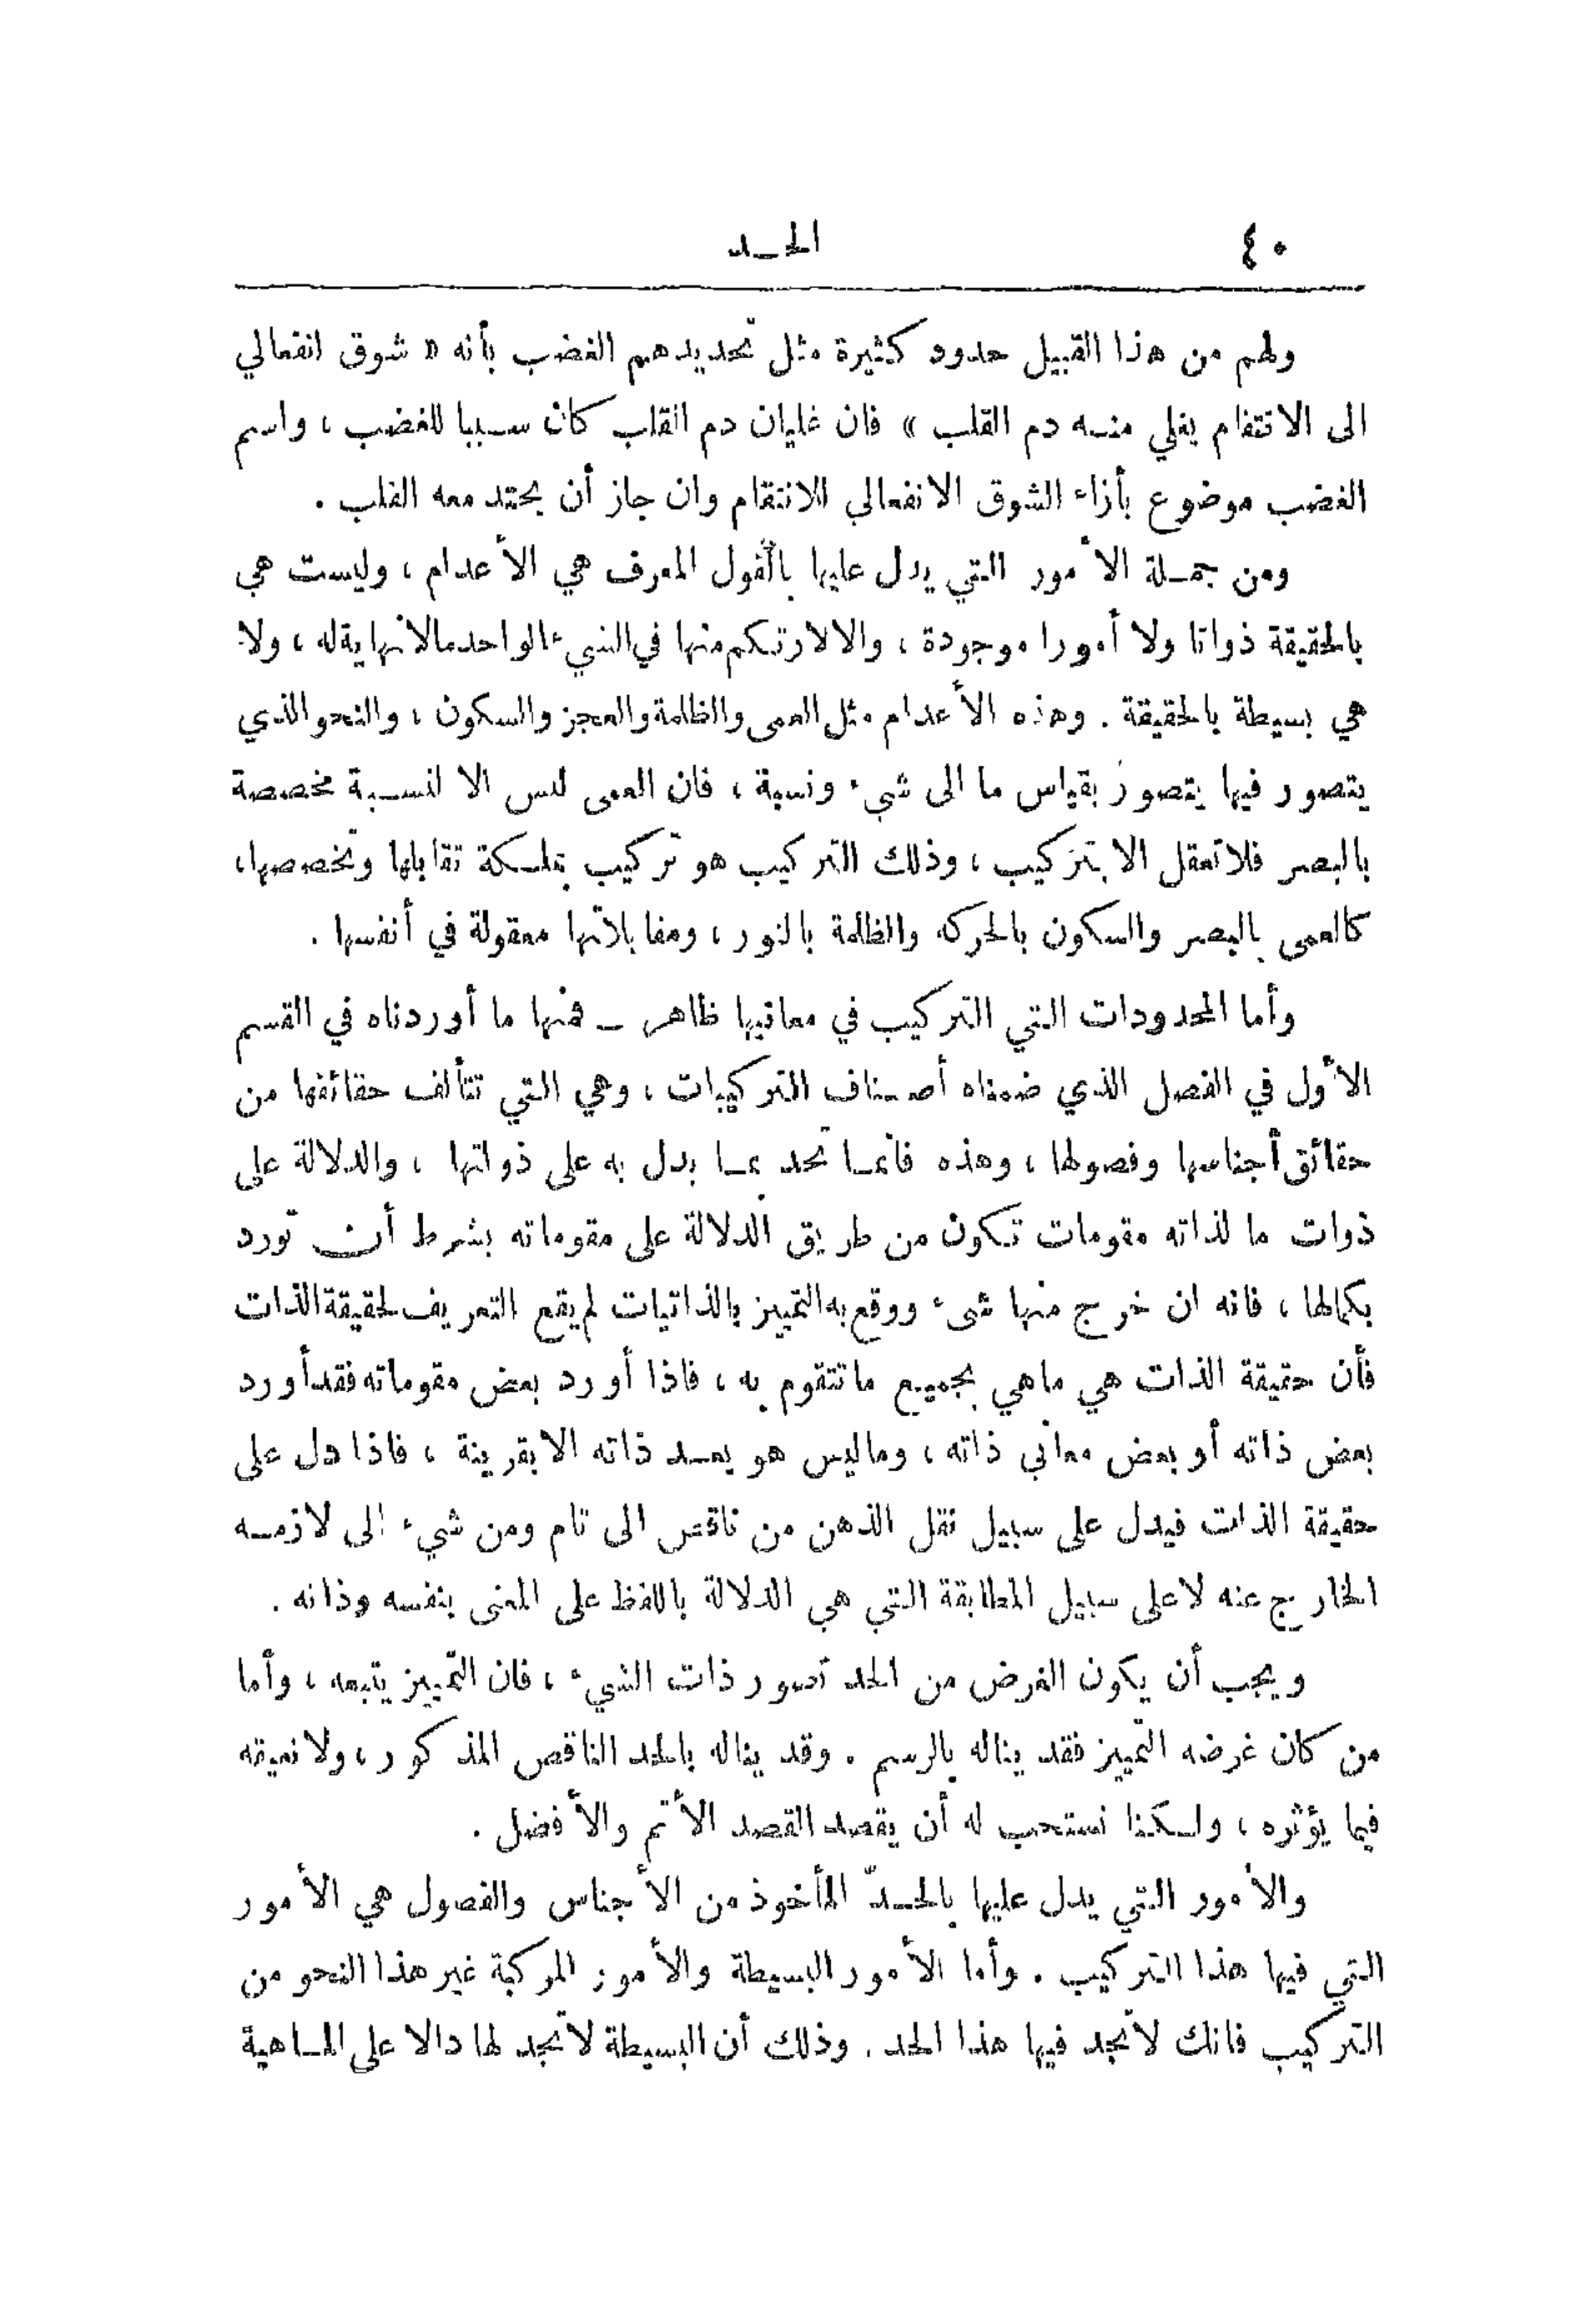 ٤٠
الحد
ولهم من هذا القبيل حدود كثيرة مثل تحديدهم الغضب بأنه « شوق انفعالي
الى الانتقام يغلي منه دم القلب » فان غليان دم القلب كان سببا للغضب ، واسم
الغضب موضوع بأزاء الشوق الانفعالي للانتقام وان جاز أن يحتد معه القلب .
ومن جملة الأمور التي يدل عليها بالقول المعرف هي الأعدام ، وليست هي
بالحقيقة ذواتا ولا أمورا موجودة ، والا لارتكم منها في الشيء الواحد مالانهاية له ، ولا
هي بسيطة بالحقيقة . وهذه الأعدام مثل العمى والظلمة والعجز والسكون ، والنحو الذي
يتصور فيها يتصور بقياس ما الى شيء ونسبة ، فان العمى ليس الا لنسبة مخصصة
بالبصر فلا تعقل الا بتركيب ، وذلك التركيب هو تركيب بملكة تقابلها وتخصصها ،
كالعمى بالبصر والسكون بالحركه والظلمة بالنور ، ومقابلاتها معقولة في أنفسها .
وأما المحدودات التي التركيب في معانيها ظاهر ــ فمنها ما أوردناه في القسم
الأول في الفصل الذي ضمناه أصناف التركيبات ، وهي التي تتألف حقائقها من
حقائق أجناسها وفصولها ، وهذه فانما تحد بما يدل به على ذواتها ، والدلالة على
ذوات ما لذاته مقومات تكون من طريق الدلالة على مقوماته بشرط أن تورد
بكمالها ، فانه ان خرج منها شىء ووقع به التمييز بالذاتيات لم يقع التعريف لحقيقة الذات
فأن حقيقة الذات هي ماهي بجميع ماتتقوم به ، فاذا أورد بعض مقوماته فقد أورد
بعض ذاته أو بعض معاني ذاته ، وماليس هو بعد ذاته الا بقرينة ، فاذا دل على
حقيقة الذات فيدل على سبيل نقل الذهن من ناقص الى تام ومن شيء الى لازمه
الخارج عنه لا على سبيل المطابقة التي هي الدلالة باللفظ على المعنى بنفسه وذاته .
ويجب أن يكون الغرض من الحد تصور ذات الشيء ، فان التمييز يتبعه ، وأما
من كان غرضه التمييز فقد يناله بالرسم . وقد يناله بالحد الناقص المذكور ، ولا نعيقه
فيما يؤثره ، ولكنا نستحب له أن يقصد القصد الأتم والأفضل .
والأمور التي يدل عليها بالحدّ المأخوذ من الأجناس والفصول هي الأمور
التي فيها هذا التركيب . وأما الأمور البسيطة والأمور المركبة غير هذا النحو من
التركيب فانك لاتجد فيها هذا الحد . وذلك أن البسيطة لاتجد لها دالا على الماهية